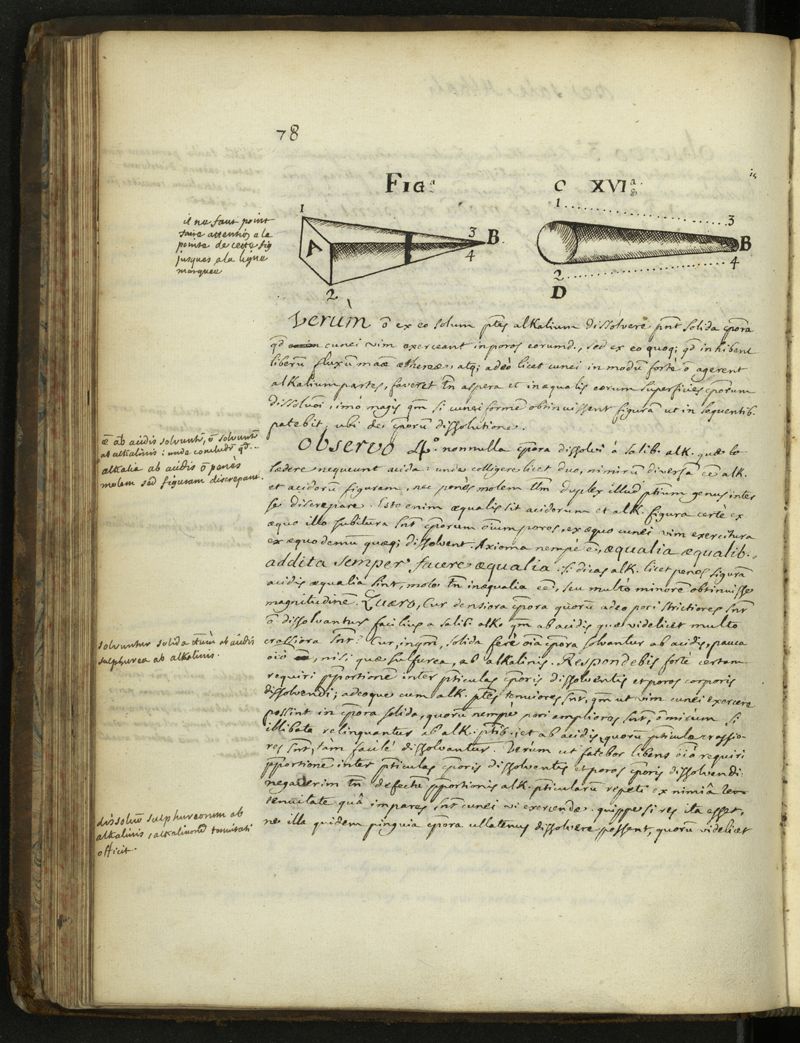 78
FIG.a
C XVI.a
1
1
3
il ne faut point
faire attention a la
pointe de cette fig
jusques a la ligne
marquee
A
3
B
4
B
4
2
2
D
Verùm ō ex eo solum ptēs alkalium dissolvere pnt solida cpora
qd cunei vim exerceant in poros eorumd., sed ex eo quoq; qd inhibent
liberū fluxū maæ æthereæ, atq; adeò licet cunei in modū fortè ō agerent
alkalium partes, faveret tn aspera et inæqualis eorum superficies cporum
dissoluōi, imò magis qm si cunei formē obtinuissent figurā ut in sequentib.
patebit, ubi de cporū dissolutione.
Observo 4.o nonnulla cpora dissolvi à salib. alk. quæ
lædere nequeunt acida: unde colligere licet duo, nimirū diversā eē alk.
et acidorū figuram, nec penès molem tm duplex illud ptium genus inter
se discrepare. Esto enim æqualis sit acidorum et alk. figura certè ex
æquo illa subitura snt cporum oium poros, ex æquo cunei vim exercitura
ex æquo demū quæq; dissolvent. Axioma nempè ē, æqualia æqualib.
addita semper facere æqualia. si dicas alk. licet penes figurā
acidis æqualia sint, mole tn inæqualia eē, seu multò minorē obtinuisse
magnitudinē. Quæro, Cur densiora cpora quorū adeo pori strictiores snt
ō dissolvantur faciliùs a salib. alko qm ab acidis quæ videlicet multo
crassiora snt? Cur, inqm, solida ferè oia cpora solvantur ab acidis, pauca
nisi quæ sulfurea, ab alkalinis. Respondebis fortè certam
requiri pportionē inter pticulas cporis dissolventis et poros corporis
dissolvendi; adeoque cum alk. ptēs tenuiores snt, qm ut vim cunei exercere
possint in cpora solida, quorū nempè pori ampliores snt, ō mirum si
illibata relinquantur ab alk. ptib., et ab acidis, quorū pticulæ crassio-
res snt, tàm facilè dissolvantur. Verum ut fatebor libens oiō requiri
pportionē inter pticulas cporis dissolventis et poros cporis dissolvendi
negaverim tn defectū pportionis alk. pticularū repeti ex nimiâ
tenuitate quâ impares snt cunei vi exercendæ. quippe si res ita esset,
nec illa quidem pinguia cpora ullatenus dissolvere possent, quorū videlicet
ab acidis solvunt, ō solvunt
ab alkalinis: unde concludr qd
alkalia ab acidis ō penès
molem sed figuram discrepant.
solvuntur solida ab acidis
sulphurea ab alkalinis.
dissolutō sulphureorum ab
alkalinis, alkalinorū tenuitati
officit.